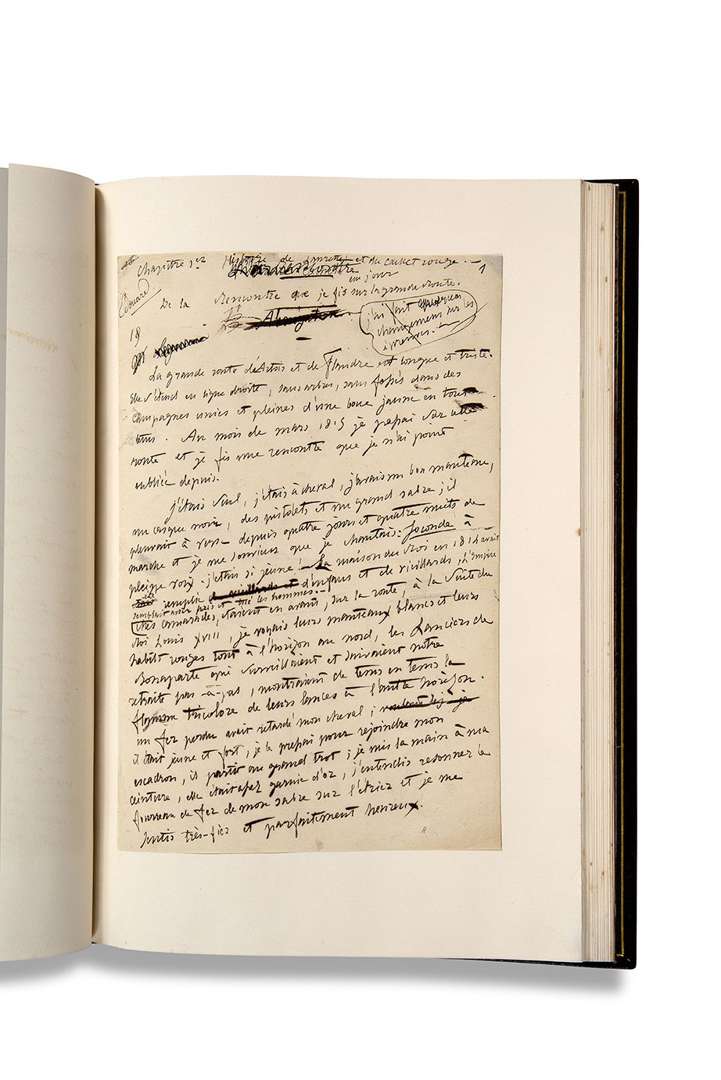 Chapitre 1er Histoire de Laurette et du cachet rouge. — 1
Edouard
De la rencontre que je fis un jour sur la grande route.
j'ai fait quelques
changemens sur les
épreuves.
La grande route d'Artois et de Flandre est longue et triste.
Elle s'étend en ligne droite, sans arbres, sans fossés dans des
campagnes unies et pleines d'une boue jaune en tout
tems. Au mois de mars 1815 je passai sur cette
route et je fis une rencontre que je n'ai point
oubliée depuis.
J'étais seul, j'étais à cheval, j'avais un bon manteau,
un casque noir, des pistolets et un grand sabre ; il
pleuvait à verse depuis quatre jours et quatre nuits de
marche et je me souviens que je chantais Joconde à
pleine voix. j'étais si jeune ! — La maison du Roi en 1814 avait
été remplie d'enfans et de vieillards ; l'Empire
semblait avoir pris et tué les hommes. —
Mes camarades étaient en avant, sur la route, à la suite du
Roi Louis XVIII ; je voyais leurs manteaux blancs et leurs
habits rouges tout à l'horizon au nord ; les Lanciers de
Bonaparte qui surveillaient et suivaient notre
retraite pas-à-pas, montraient de tems en tems la
flamme tricolore de leurs lances à l'autre horizon.
un fer perdu avait retardé mon cheval ;
il était jeune et fort, je le pressai pour rejoindre mon
escadron, il partit au grand trot ; je mis la main à ma
ceinture, elle était assez garnie d'or, j'entendis résonner le
fourreau de fer de mon sabre sur l'étrier et je me
sentis très-fier et parfaitement heureux.